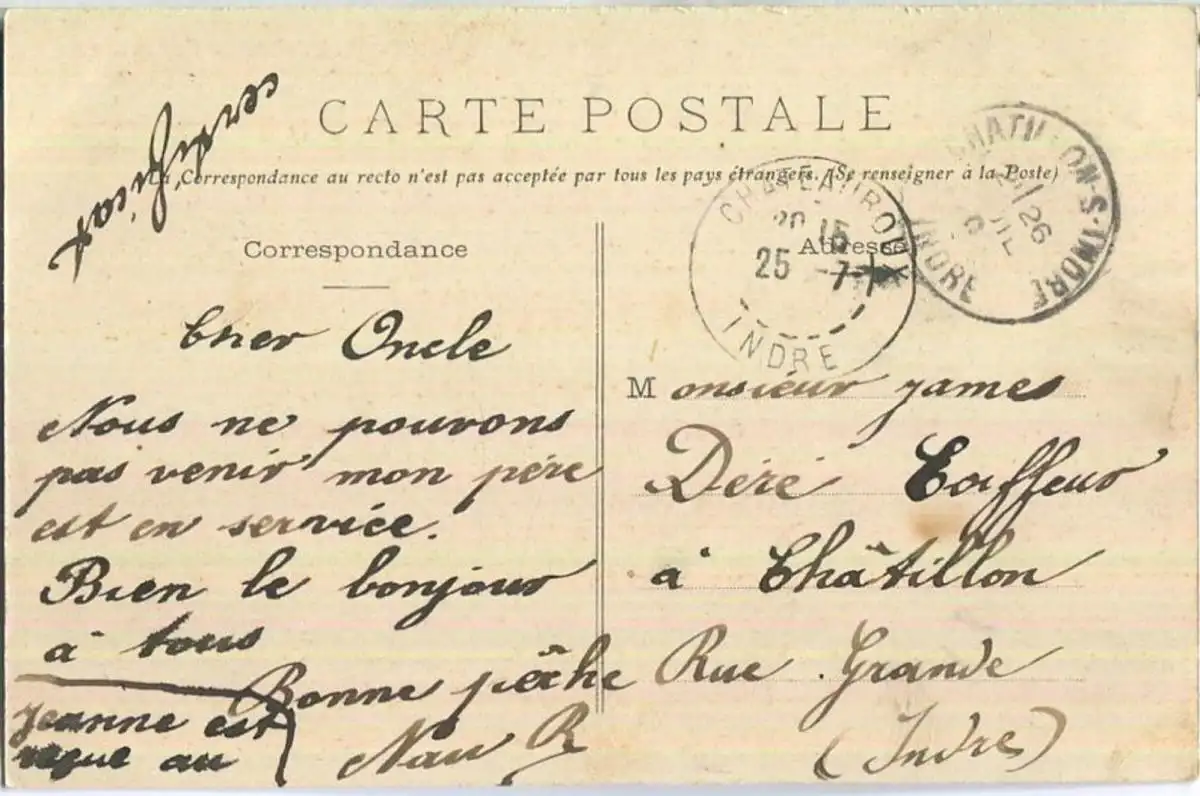 CARTE POSTALE
La Correspondance au recto n'est pas acceptée par tous les pays étrangers. (Se renseigner à la Poste)
Correspondance
Adresse
CHATEAUROUX
20 15
25 -7-1
INDRE
CHATILLON-S-INDRE
26
INDRE
Cher Oncle
Nous ne pouvons
pas venir mon père
est en service.
Bien le bonjour
à tous
Bonne pêche
Nau R
Jeanne est
reçue au
certificat
Monsieur James
Déré Coiffeur
à Châtillon
Rue Grande
(Indre)